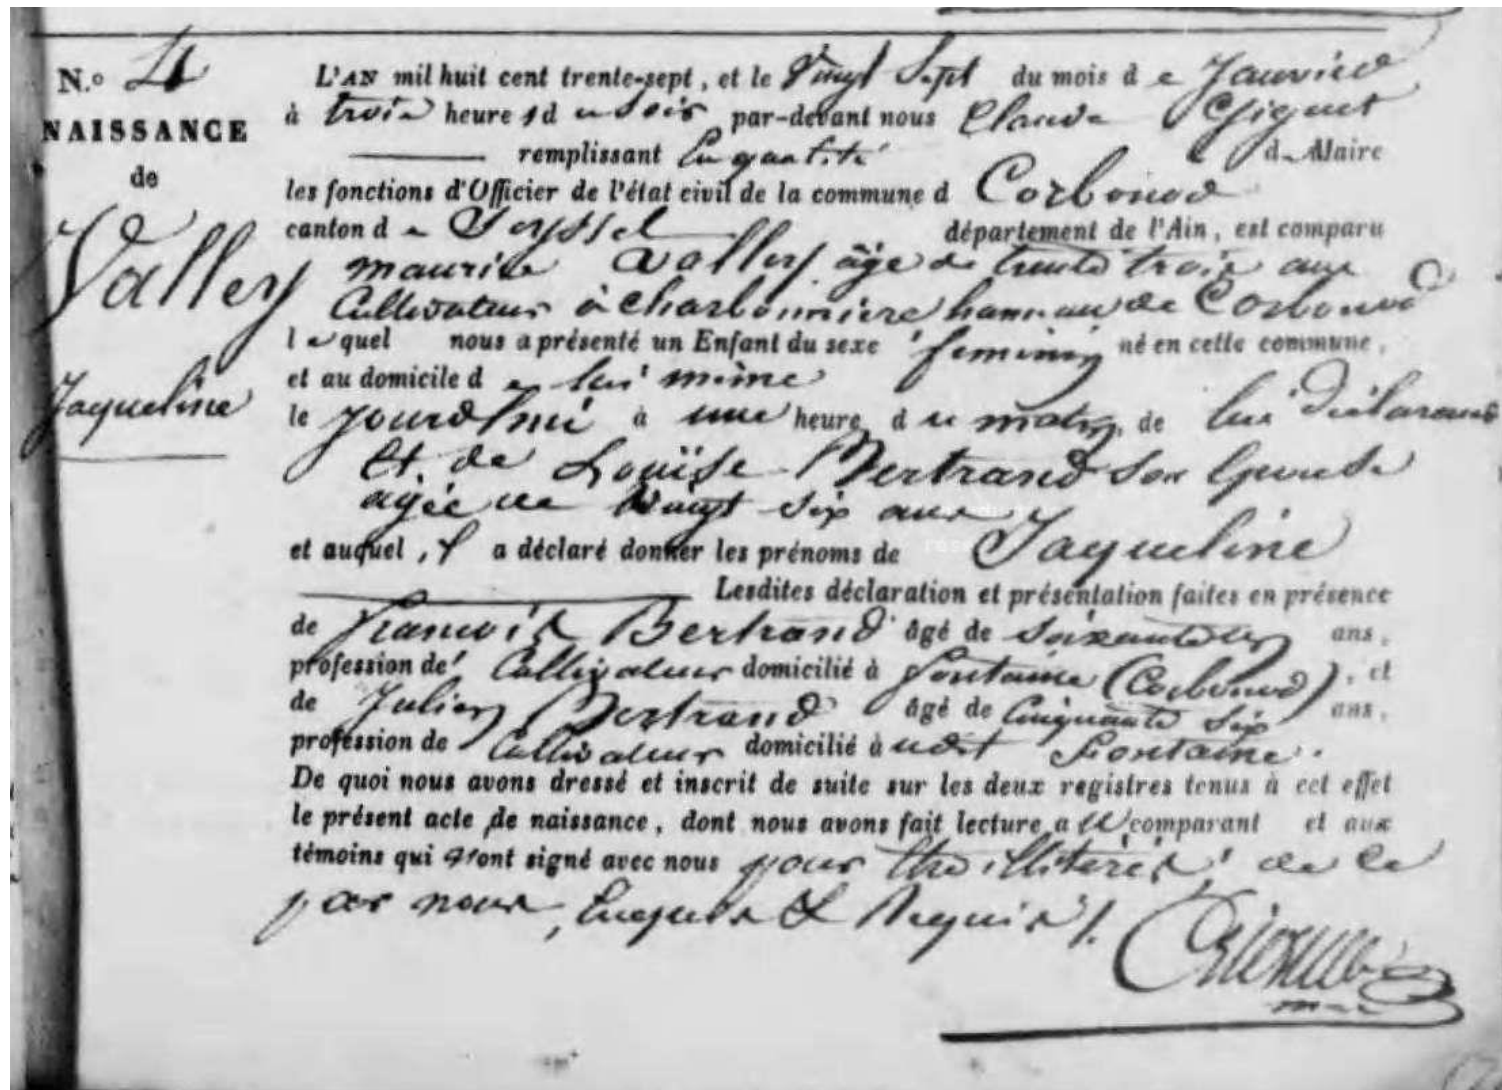 N.o 4
NAISSANCE
de
Valley
Jaqueline
L'AN mil huit cent trente-sept, et le Vingt Sept du mois d e Janvier
à trois heure s d u soir par-devant nous Claude
remplissant En quantité d Maire
les fonctions d'Officier de l'état civil de la commune d Corbonod
canton d e Seyssel département de l'Ain, est comparu
maurice Valley âgé de trente trois ans
Cultivateur à Charbonniere hameau de Corbonod
l e quel nous a présenté un Enfant du sexe feminin né en cette commune,
et au domicile d e lui même
le jourdhui à une heure d u matin, de lui déclarant
Et de Louise Bertrand son Epouse
agée de vingt six ans
et auquel, il a déclaré donner les prénoms de Jaqueline
Lesdites déclaration et présentation faites en présence
de francois Bertrand âgé de ans,
profession de Cultivateur domicilié à fontaine (Corbonod), et
de Julien Bertrand âgé de Cinquante Six ans,
profession de Cultivateur domicilié à udit Fontaine.
De quoi nous avons dressé et inscrit de suite sur les deux registres tenus à cet effet
le présent acte de naissance, dont nous avons fait lecture a u comparant et aux
témoins qui n'ont signé avec nous pour de ce
par nous, Enquis & Requis /.